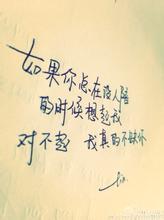 如果你总在没人陪
的时候想起我
对不起 我真的不缺你